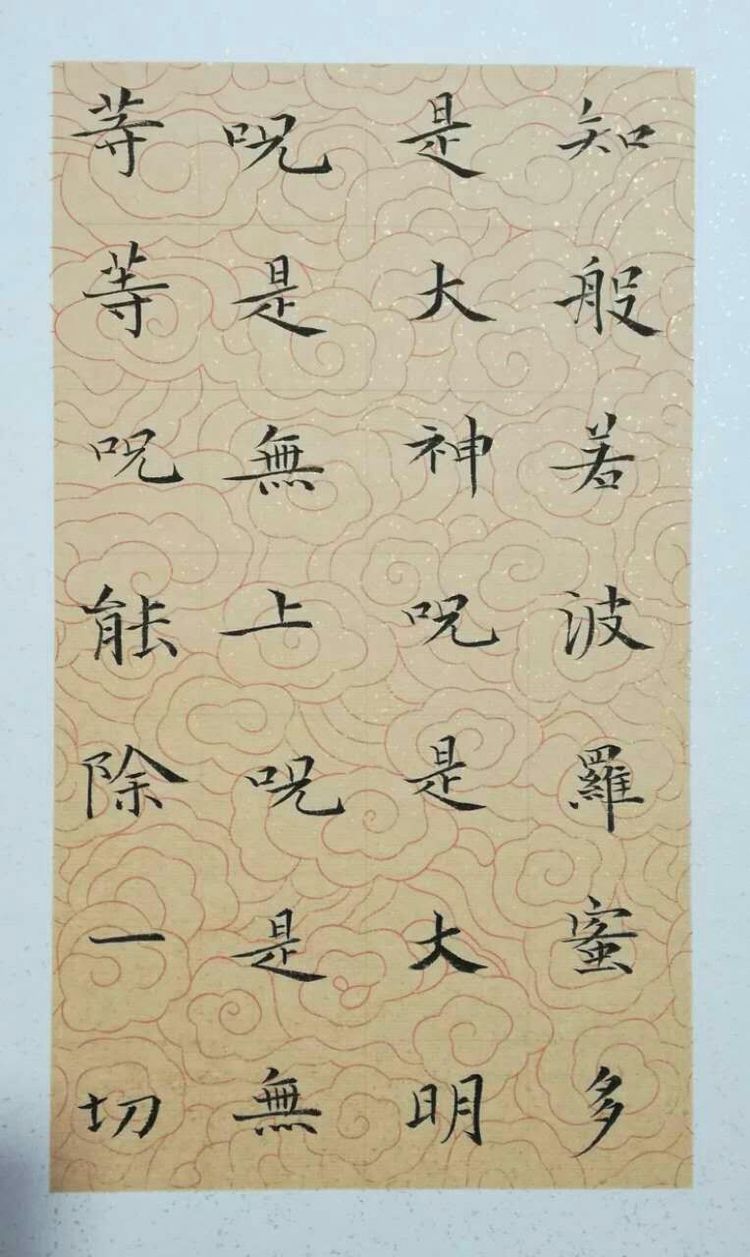 知般若波羅蜜多
是大神呪是大明
呪是無上呪是無
等等呪能除一切